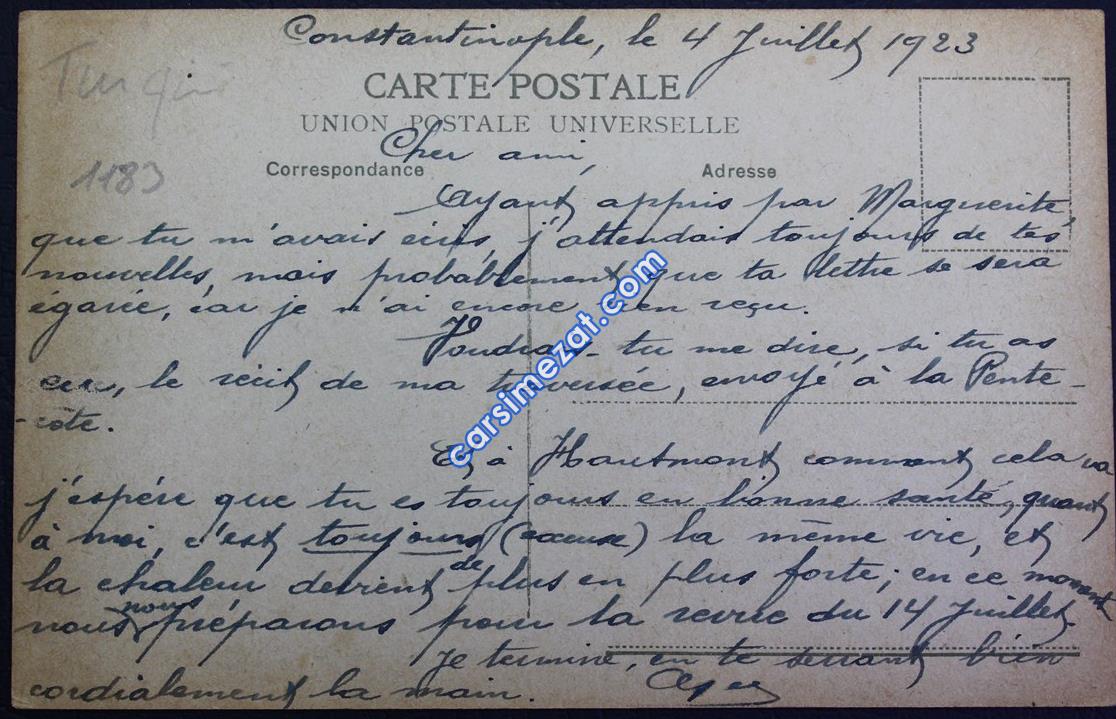 Constantinople, le 4 Juillet 1923
Turquie
CARTE POSTALE
UNION POSTALE UNIVERSELLE
Cher ami,
1183
Correspondance
Adresse
Ayant appris par Marguerite
que tu m'avais écris, j'attendais toujours de tes
nouvelles, mais probablement que ta lettre se sera
égarée, car je n'ai encore rien reçu.
Voudrais-tu me dire, si tu as
eu, le récit de ma traversée, envoyé à la Pente-
-côte.
Et à Hautmont comment cela va
j'espère que tu es toujours en bonne santé, quant
à moi, c'est toujours (excuse) la même vie, et
la chaleur devient de plus en plus forte; en ce moment
nous nous préparons pour la revue du 14 Juillet.
Je termine, en te serrant bien
cordialement la main.
carsimezat.com